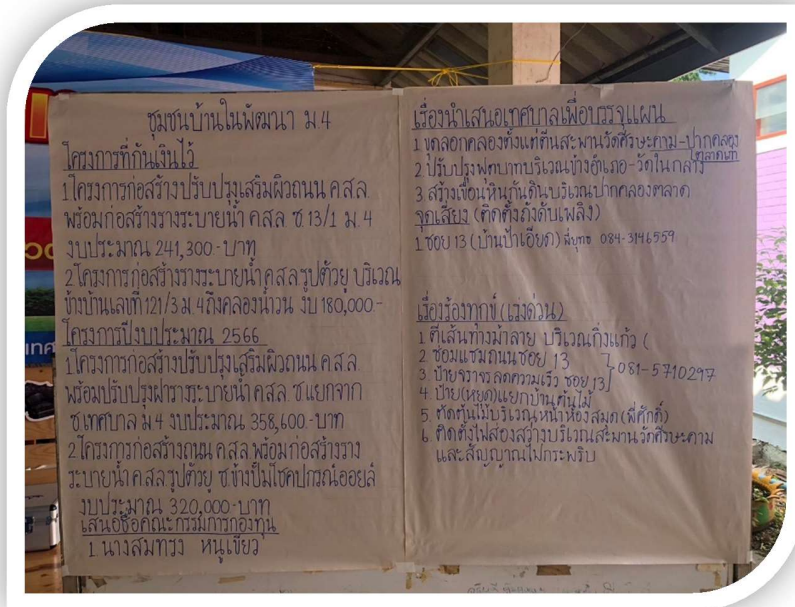 ชุมชนบ้านในพัฒนา ม.4
โครงการที่กันเงินไว้
1.โครงการก่อสร้างปรับปรุงเสริมผิวถนน คสล.
พร้อมก่อสร้างรางระบายน้ำ คสล. ซ.13/1 ม.4
งบประมาณ 241,300.-บาท
2.โครงการก่อสร้างรางระบายน้ำคสล.รูปตัวยู บริเวณ
ข้างบ้านเลขที่ 121/3 ม.4ถึงคลองน้ำวน งบ 180,000.-
โครงการปีงบประมาณ 2566
1.โครงการก่อสร้างปรับปรุงเสริมผิวถนน คสล.
พร้อมปรับปรุงฝารางระบายน้ำคสล. ซ.แยกจาก
ซ.เทศบาล ม.4 งบประมาณ 358,600.-บาท
2.โครงการก่อสร้างถนน คสล.พร้อมก่อสร้างราง
ระบายน้ำคสล.รูปตัวยู ซ.ข้างปั๊มโชคปกรณ์ออยล์
งบประมาณ 320,000.-บาท
เสนอชื่อคณะกรรมการกองทุน
1. นางสมทรง หนูเขียว
เรื่องนำเสนอเทศบาลเพื่อบรรจุแผน
1.ขุดลอกคลองตั้งแต่ตีนสะพานวัดศีรษะคาม-ปากคลอง
ตลาดเท
2.ปรับปรุงฟุตบาทบริเวณข้างอำเภอ-วัดในกลาง
3.สร้างเขื่อนหินกันดินบริเวณปากคลองตลาด
จุดเสี่ยง (ติดตั้งถังดับเพลิง)
1.ซอย 13 (บ้านป้าเอียด) 084-3146559
เรื่องร้องทุกข์ (เร่งด่วน)
1. ตีเส้นทางม้าลาย บริเวณกิ่งแก้ว (
2. ซ่อมแซมถนนซอย 13
3. ป้ายจราจรลดความเร็ว ซอย 13 081-5710297
4. ป้าย(หยุด)แยกบ้านต้นไม้
5. ตัดต้นไม้บริเวณหน้าห้องสมุด (พี่ศักดิ์)
6. ติดตั้งไฟส่องสว่างบริเวณสะพานวัดศีรษะคาม
และสัญญาณไฟกระพริบ